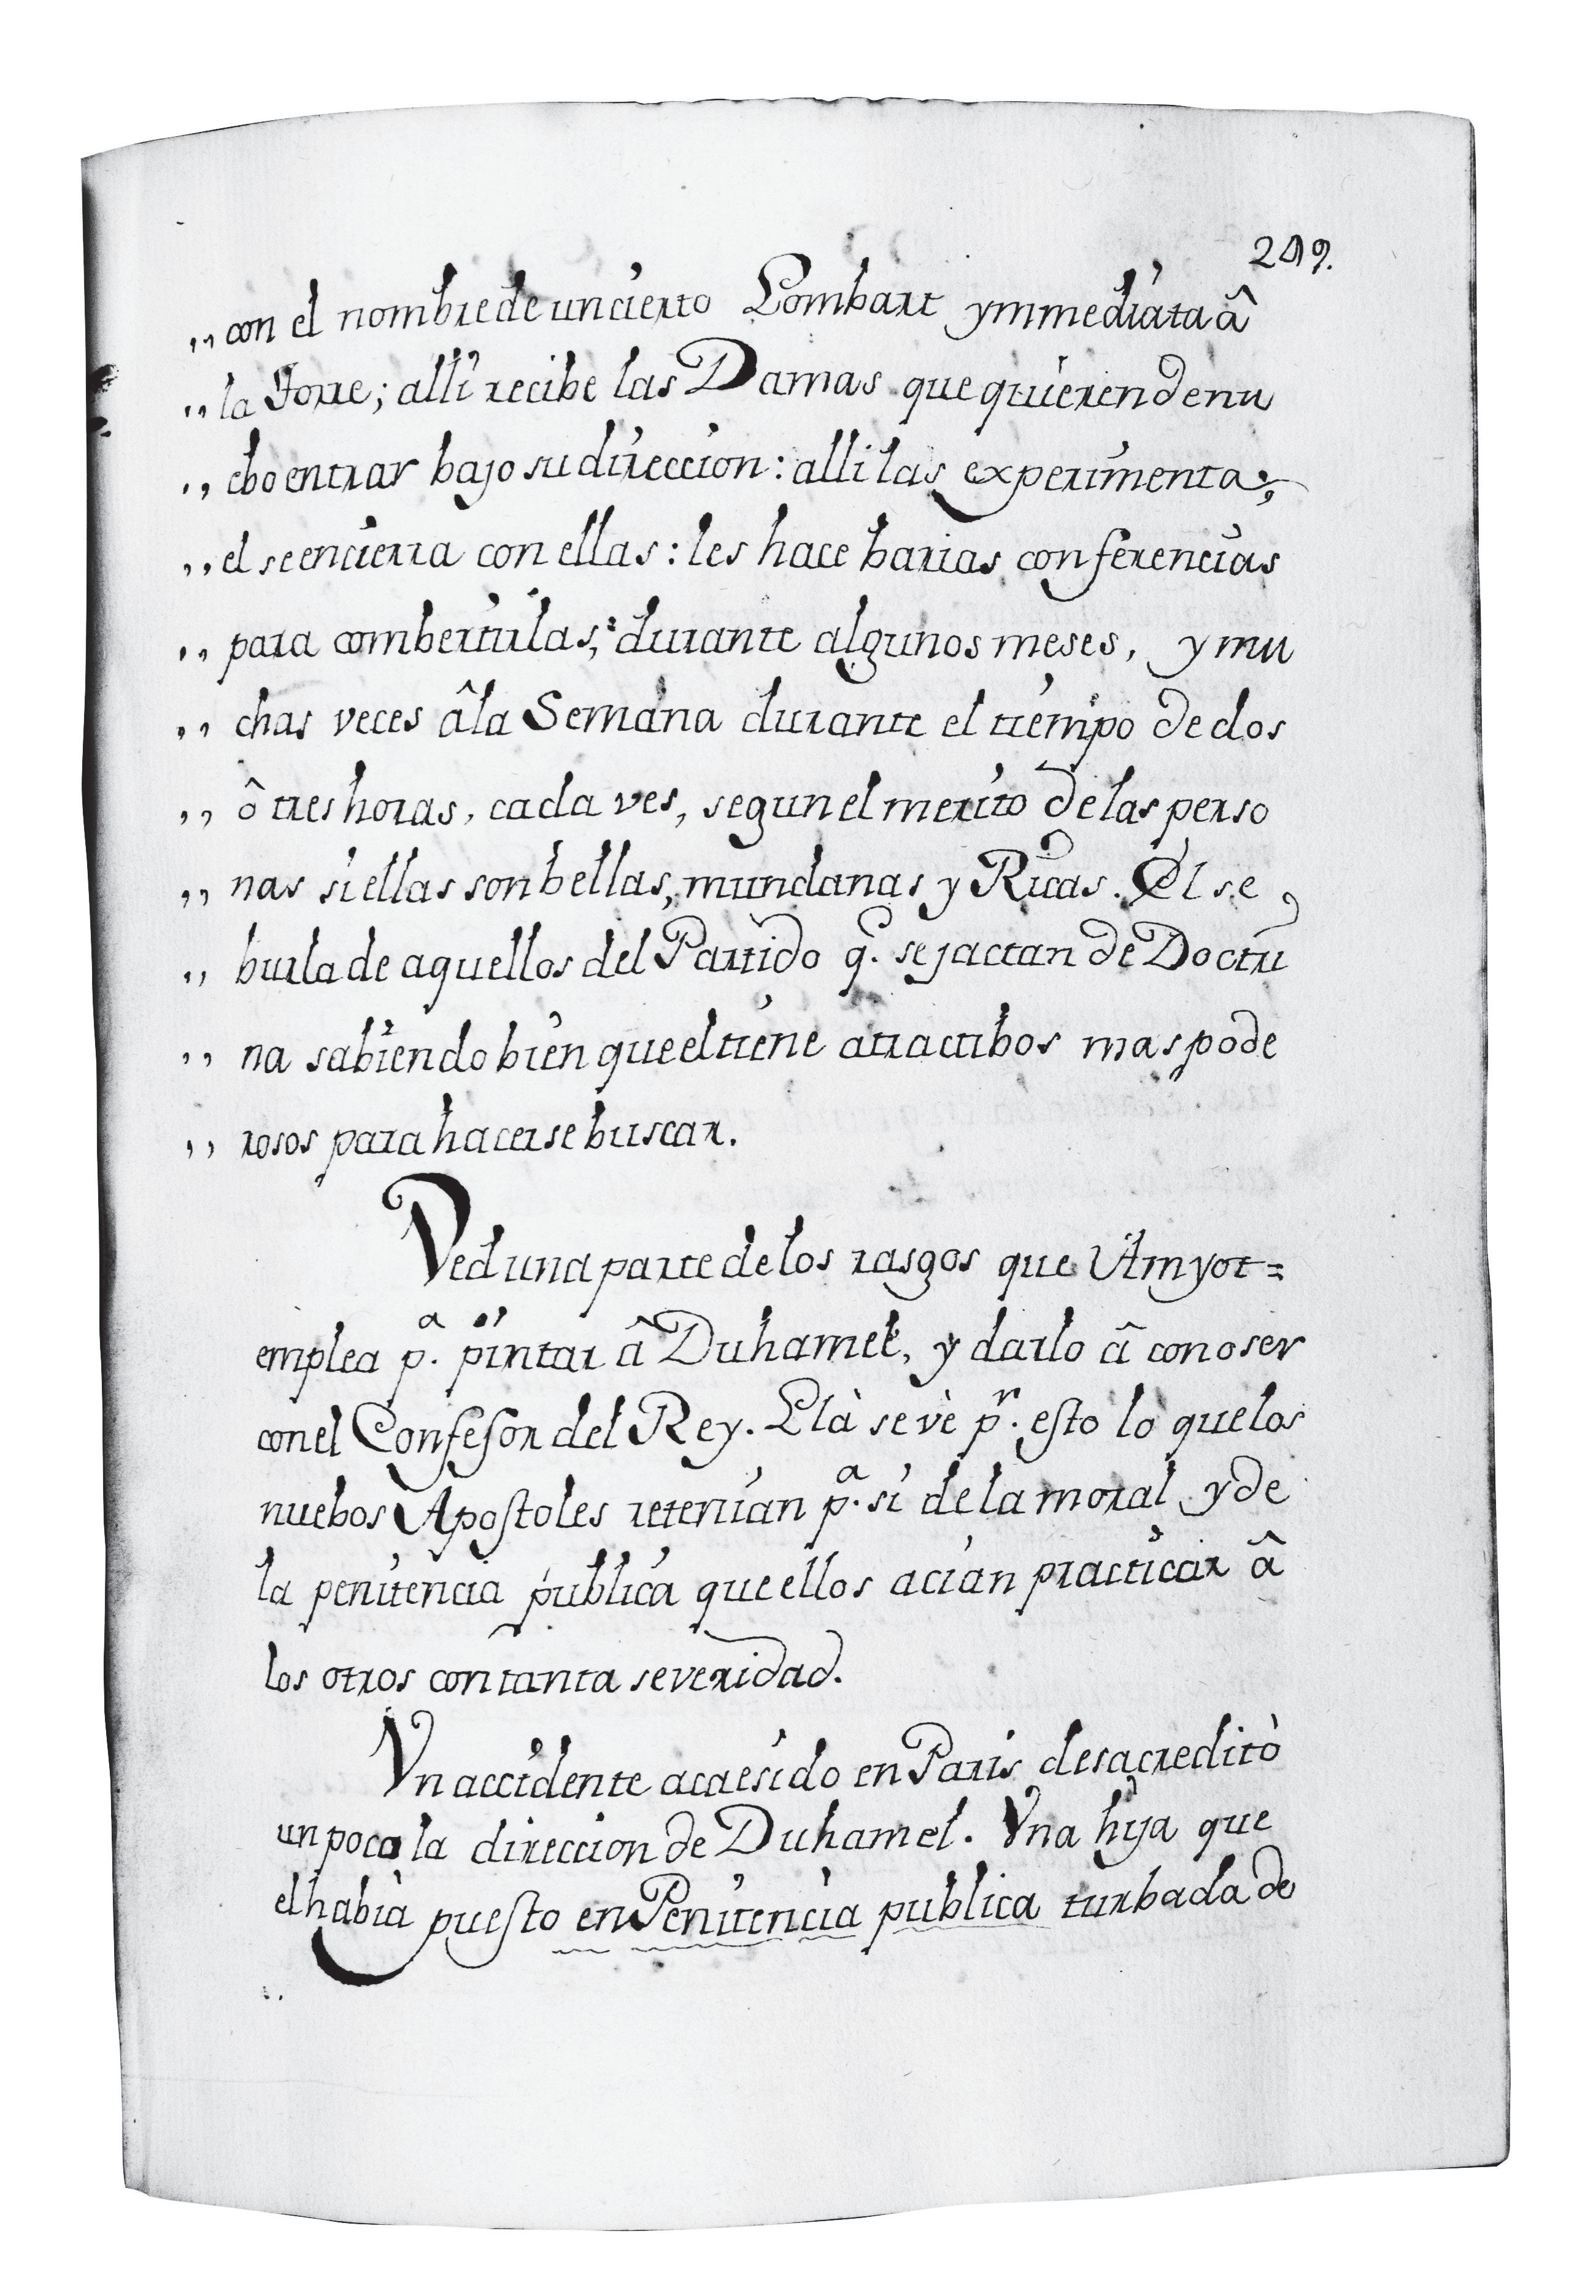 249.
,, con el nombre de un cierto Lombart ymmediata â
,, la Torre; alli recibe las Damas que quieren de nu
,, ebo entrar bajo su direccion: alli las experimenta;
,, el se encierra con ellas: les hace barias conferencias
,, para combertirlas; durante algunos meses, y mu
,, chas veces âla Semana durante el tiempo de dos
,, ô tres horas, cada ves, segun el merito de las perso
,, nas si ellas son bellas, mundanas y Ricas. El se
,, burla de aquellos del Partido q. se jactan de Doctri
,, na sabiendo bien que el tiene atractibos mas pode
,, rosos para hacerse buscar.
Ved una parte de los rasgos que Amyot=
emplea p.ª pintar â Duhamel, y darlo â conoser
con el Confesor del Rey. Ella se vè p.r esto lo que los
nuebos Apostoles retenian p.ª si de la moral y de
la penitencia publica que ellos acian practicar â
los otros con tanta severidad.
Yn accidente acaesido en Paris desacreditò
un poco la direccion de Duhamel. Yna hija que
el habia puesto en Penitencia publica turbada de